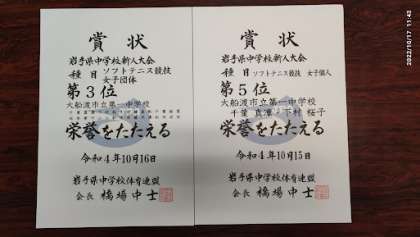 賞状
岩手県中学校新人大会
種目 ソフトテニス競技
女子団体
第3位
大船渡市立第一中学校
栄誉をたたえる
令和4年10月16日
岩手県中学校体育連盟
会長 橋場中士
賞状
岩手県中学校新人大会
種目 ソフトテニス競技 女子個人
第5位
大船渡市立第一中学校
千葉 真凜 下村 桜子
栄誉をたたえる
令和4年10月15日
岩手県中学校体育連盟
会長 橋場中士
2022/10/17 11:43